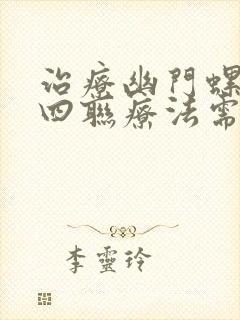 治療幽門螺
四聯療法需
李靈玲